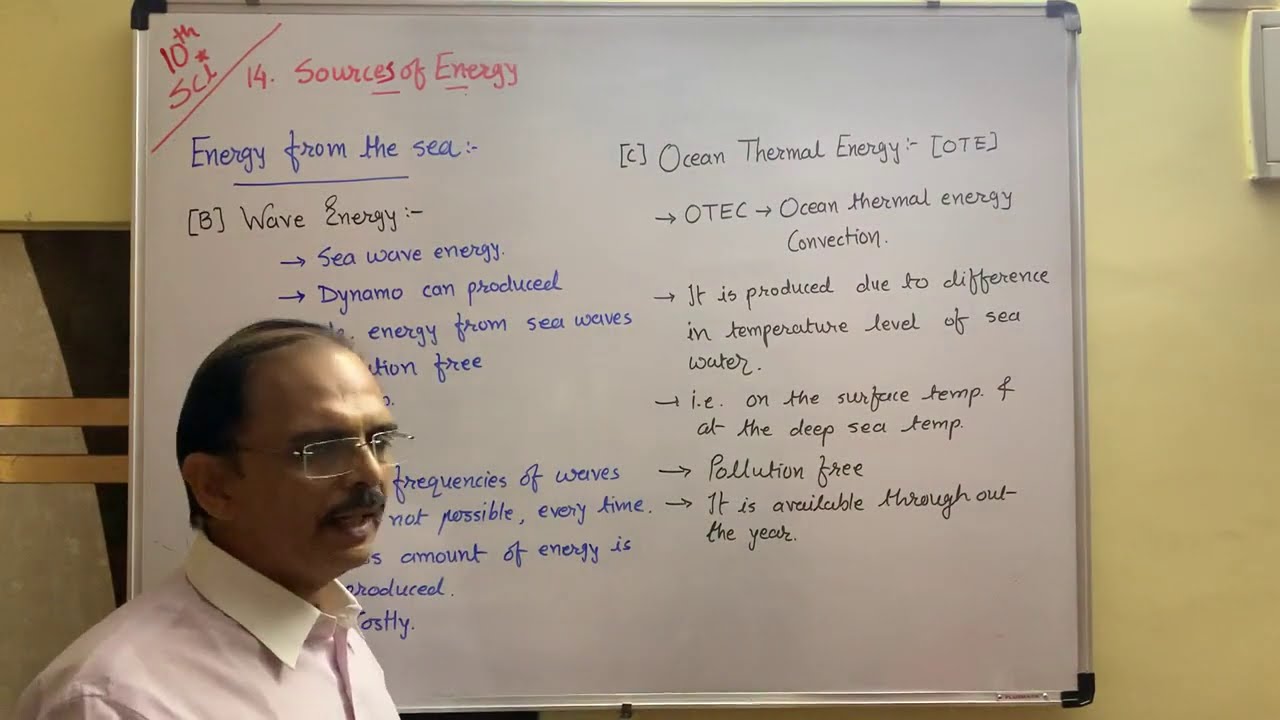 10th
Sci
14. Sources of Energy
Energy from the sea:-
[B] Wave Energy:-
→ Sea wave energy.
→ Dynamo can produced
energy from sea waves
free
frequencies of waves
not possible, every time.
amount of energy is
produced.
[C] Ocean Thermal Energy:- [OTE]
→ OTEC → Ocean thermal energy
Convection.
→ It is produced due to difference
in temperature level of sea
water.
→ i.e. on the surface temp. &
at the deep sea temp.
→ Pollution free
→ It is available through out-
the year.